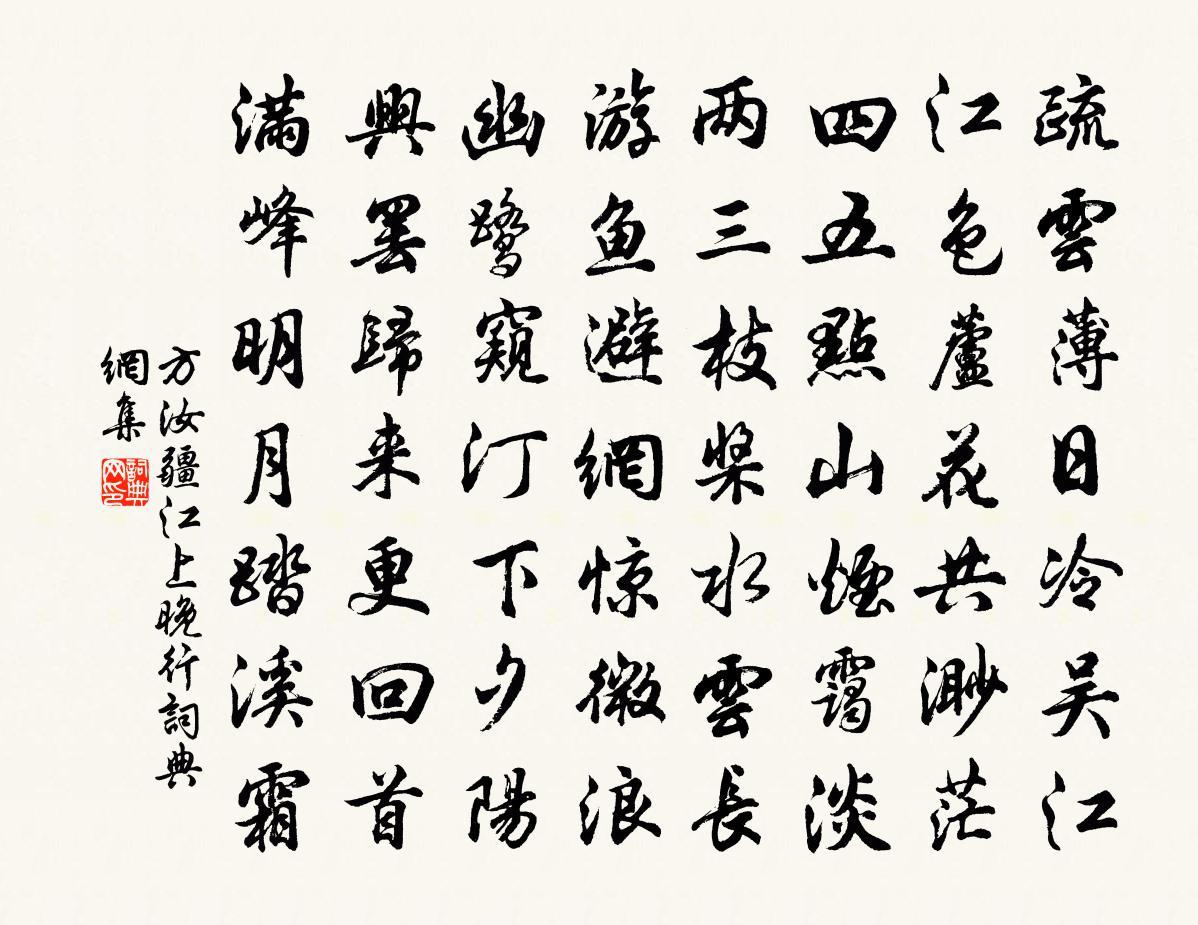 疏雲薄日冷吴江
江色蘆花共渺茫
四五點山煙靄淡
两三枝槳水雲長
游鱼避網惊微浪
幽鹭窺汀下夕陽
興罢歸来更回首
满峰明月踏溪霜
方汝疆江上晚行詞典
網集
詞典
网印